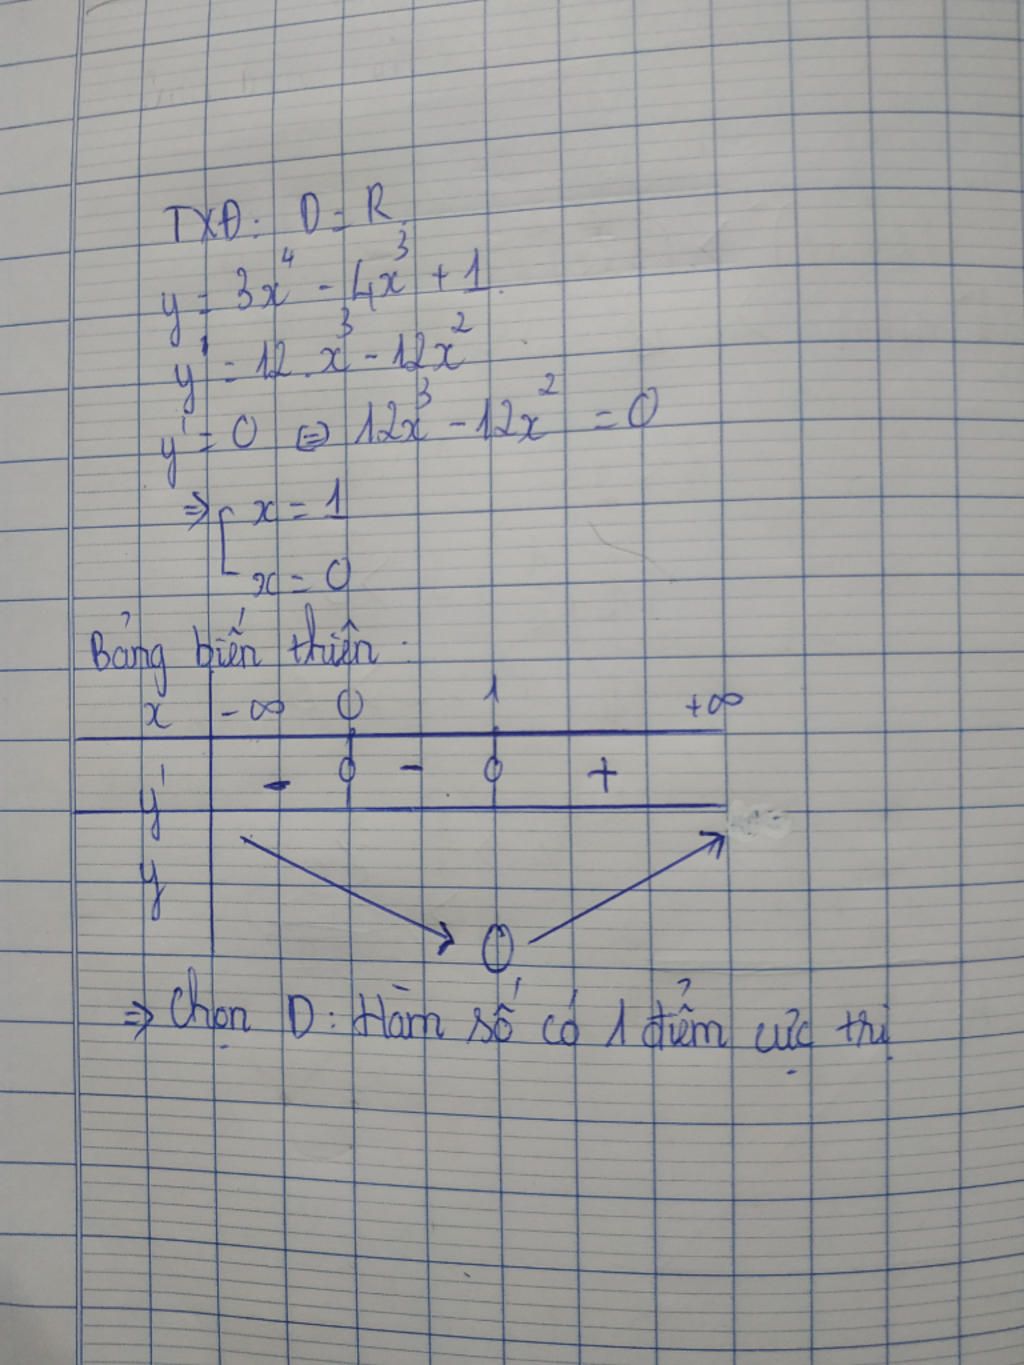 TXĐ: D = R.
y = 3x⁴ - 4x³ + 1.
y' = 12.x³ - 12x²
y' = 0 ⇔ 12x³ - 12x² = 0
⇒ [ x = 1
x = 0
Bảng biến thiên:
x -∞ 0 1 +∞
y' - 0 - 0 +
y
0
⇒ Chọn D: Hàm số có 1 điểm cực trị